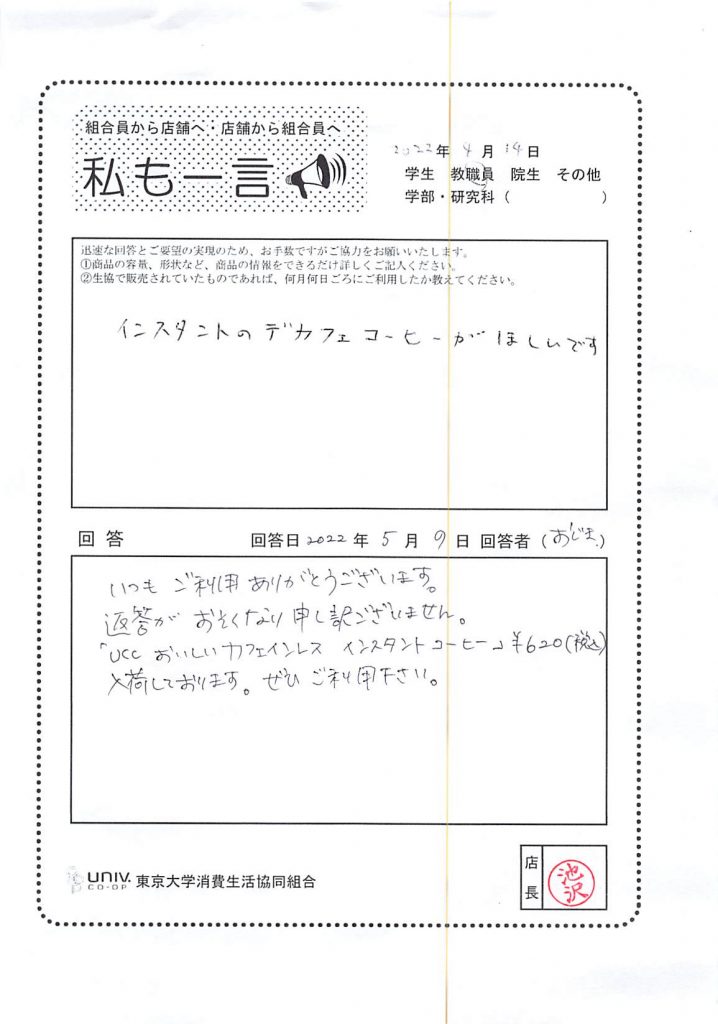 組合員から店舗へ・店舗から組合員へ
私も一言
2022年 4月 14日
学生 教職員 院生 その他
学部・研究科（ ）
迅速な回答とご要望の実現のため、お手数ですがご協力をお願いいたします。
①商品の容量、形状など、商品の情報をできるだけ詳しくご記入ください。
②生協で販売されていたものであれば、何月何日ごろにご利用したか教えてください。
インスタントのデカフェコーヒーがほしいです
回答 回答日 2022年 5月 9日 回答者（おじま）
いつもご利用ありがとうございます。
返答がおそくなり申し訳ございません。
「UCC おいしいカフェインレス インスタントコーヒー」¥620(税込)
入荷しております。ぜひご利用下さい。
UNIV. CO-OP 東京大学消費生活協同組合
店長 池沢